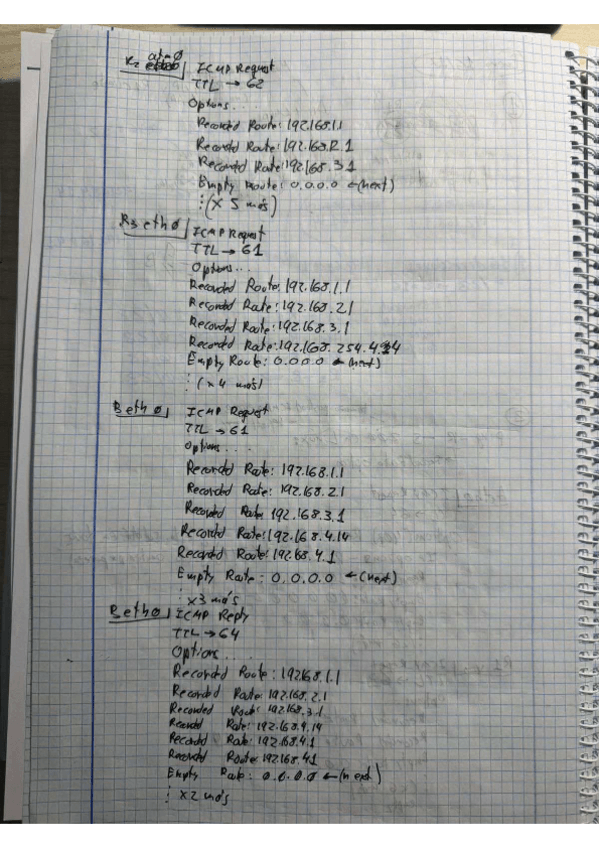 R2 eth0 ICMP Request
TTL → 62
Options...
Recorded Route: 192.168.1.1
Recorded Route: 192.168.2.1
Recorded Route: 192.168.3.1
Empty Route: 0.0.0.0 ←(next)
⋮ (x 5 más)
R3 eth0 ICMP Request
TTL → 61
Options...
Recorded Route: 192.168.1.1
Recorded Route: 192.168.2.1
Recorded Route: 192.168.3.1
Recorded Route: 192.168.254.4.14
Empty Route: 0.0.0.0 ← (next)
⋮ (x4 más)
B eth0 ICMP Request
TTL → 61
Options...
Recorded Route: 192.168.1.1
Recorded Route: 192.168.2.1
Recorded Route: 192.168.3.1
Recorded Route: 192.168.4.14
Recorded Route: 192.168.4.1
Empty Route: 0.0.0.0 ←(next)
⋮ x3 más
B eth0 ICMP Reply
TTL → 64
Options...
Recorded Route: 192.168.1.1
Recorded Route: 192.168.2.1
Recorded Route: 192.168.3.1
Recorded Route: 192.168.4.14
Recorded Route: 192.168.4.1
Recorded Route: 192.168.4.1
Empty Route: 0.0.0.0 ←(next)
⋮ x2 más